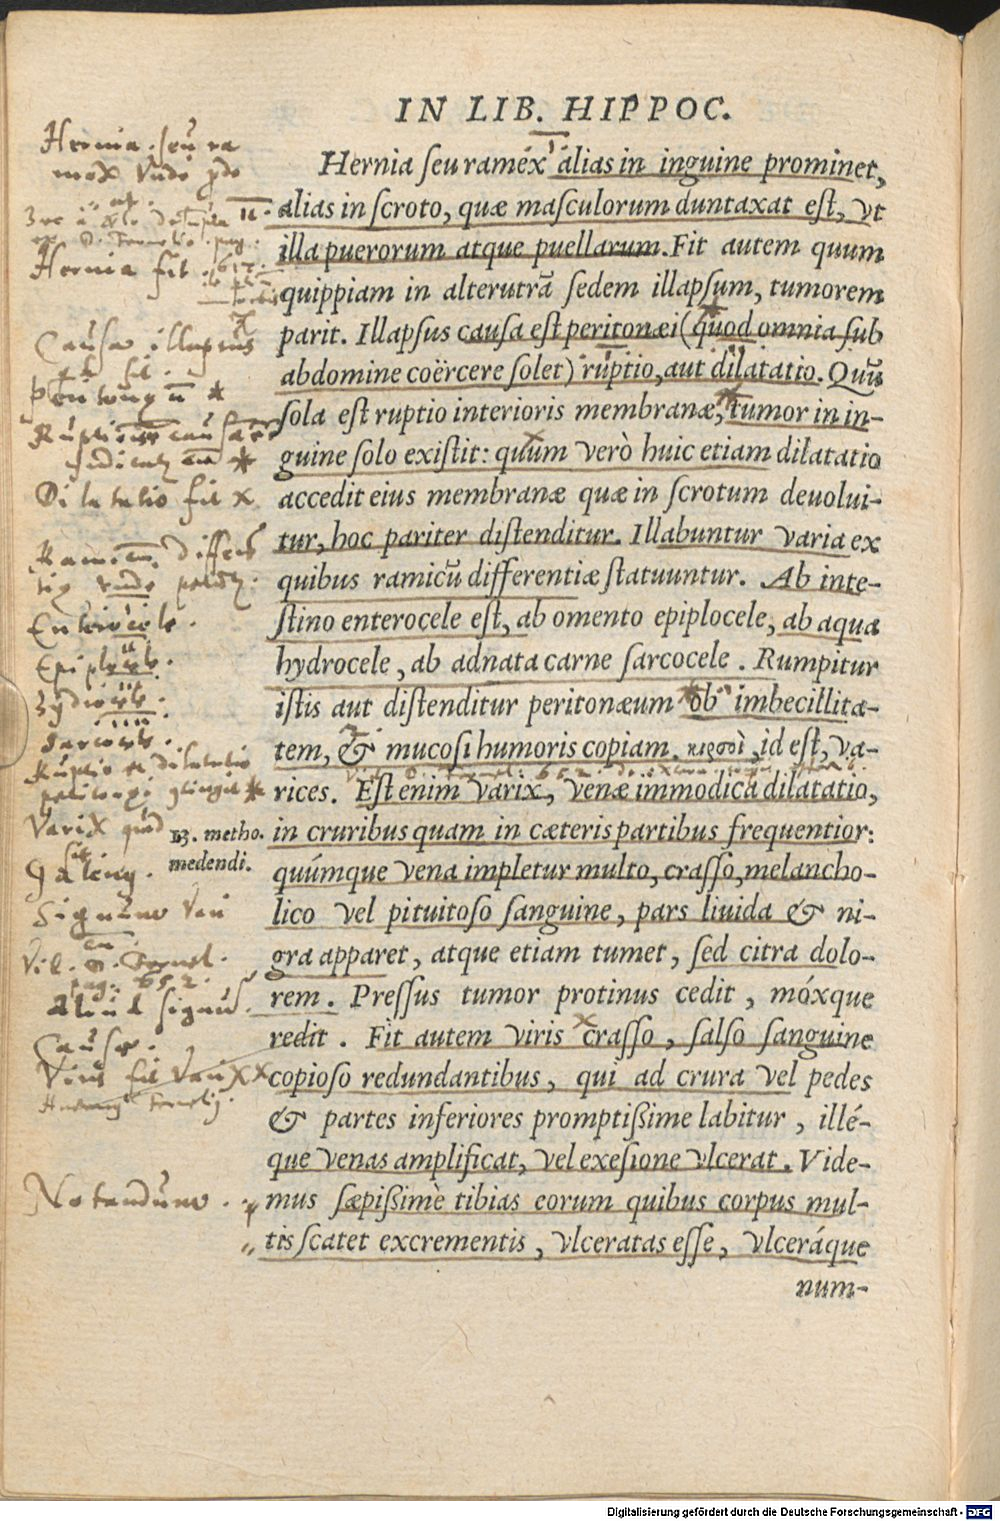 IN LIB. HIPPOC.
Hernia seu ramex alias in inguine prominet,
alias in scroto, quæ masculorum duntaxat est, vt
illa puerorum atque puellarum. Fit autem quum
quippiam in alterutrã sedem illapsum, tumorem
parit. Illapsus causa est peritonæi (quod omnia sub
abdomine coërcere solet) ruptio, aut dilatatio. Quũ
sola est ruptio interioris membranæ, tumor in in-
guine solo existit: quum verò huic etiam dilatatio
accedit eius membranæ quæ in scrotum deuolui-
tur, hoc pariter distenditur. Illabuntur varia ex
quibus ramicũ differentiæ statuuntur. Ab inte-
stino enterocele est, ab omento epiplocele, ab aqua
hydrocele, ab adnata carne sarcocele. Rumpitur
istis aut distenditur peritonæum ob imbecillita-
tem, & mucosi humoris copiam. κιρσοὶ, id est, va-
rices. Est enim varix, venæ immodica dilatatio,
in cruribus quam in cæteris partibus frequentior:
quúmque vena impletur multo, crasso, melancho-
lico vel pituitoso sanguine, pars liuida & ni-
gra apparet, atque etiam tumet, sed citra dolo-
rem. Pressus tumor protinus cedit, móxque
redit. Fit autem viris crasso, salso sanguine
copioso redundantibus, qui ad crura vel pedes
& partes inferiores promptißime labitur, illé-
que venas amplificat, vel exesione vlcerat. Vide-
mus sæpißimè tibias eorum quibus corpus mul-
tis scatet excrementis, vlceratas esse, vlceráque
num-
Hernia seu ra
mex
Hernia fit
Causa illapsus
Dilatatio fit x
Enterocele.
Epiplocele.
Sarcocele.
Varix quid
13. metho.
medendi.
Signum
aliud signum
Causa.
Notandum.
Digitalisierung gefördert durch die Deutsche Forschungsgemeinschaft - DFG